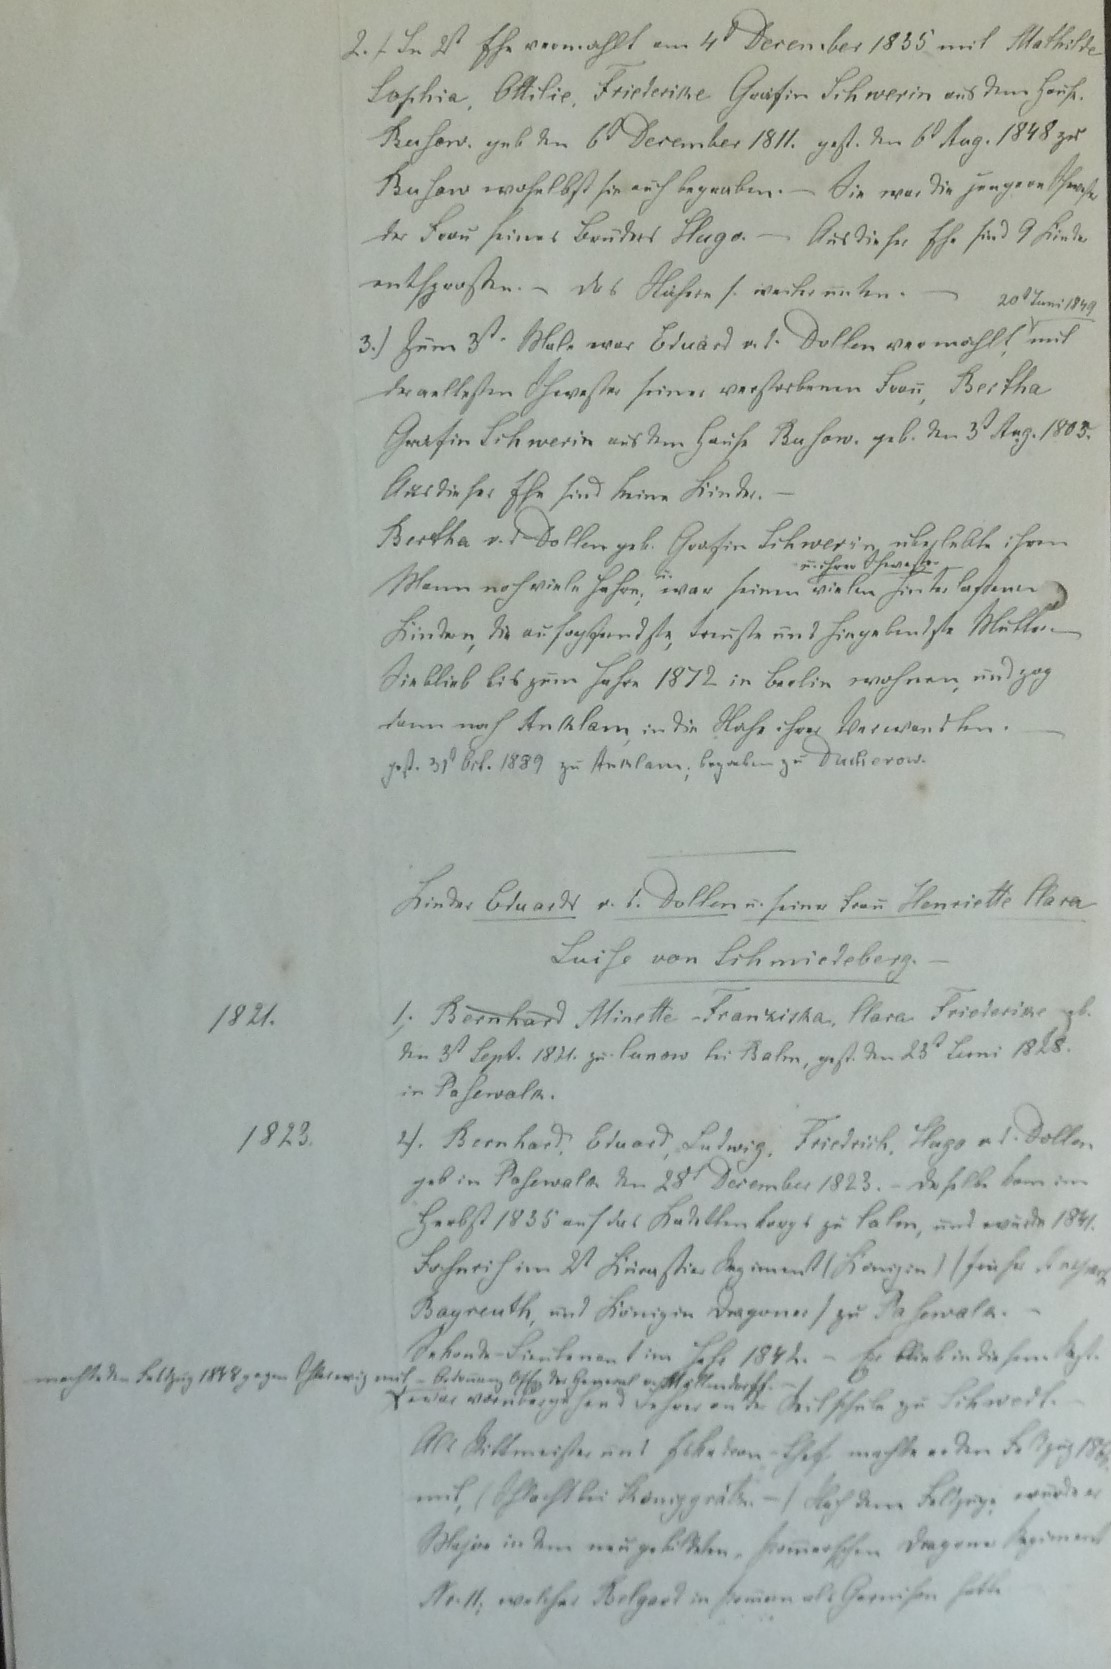 2.) In 2t Ehe vermählt am 4t December 1835 mit Mathilde
Sophia, Ottilie, Friederike Gräfin Schwerin aus dem Hause
Busow. geb den 6t December 1811. gest. den 6t Aug. 1848 zu
Busow woselbst sie auch begraben. — Sie war die jüngere Schwester
der Frau seines Bruders Hugo. — Aus dieser Ehe sind 9 Kinder
entsprossen. — das Nähere s. weiter unten. —
20t Juni 1849
3.) Zum 3t. Male war Eduard v. d. Dollen vermählt, mit
der aeltesten Schwester seiner verstorbenen Frau, Bertha
Gräfin Schwerin aus dem Hause Busow. geb. den 3t Aug. 1803.
Aus dieser Ehe sind keine Kinder. —
Bertha v. d Dollen geb. Gräfin Schwerin, überlebte ihren
u. ihrer Schwester
Mann noch viele Jahre, u. war seinen vielen hinterlassenen
Kindern, die aufopferndste, treuste und hingebendste Mutter. —
Sie blieb bis zum Jahre 1872 in Berlin wohnen, und zog
dann nach Anklam, in die Nähe ihrer Verwandten. —
gest. 31t Oct. 1889 zu Anklam; begraben zu Ducherow.
Kinder Eduards v. d. Dollen u. seiner Frau Henriette Clara
Luise von Schmiedeberg. —
1821.
1, Bernhard Minette - Franziska, Clara Friederike geb.
den 3t Sept. 1821. zu Cunow bei Bahn, gest. den 23t Juni 1828.
in Pasewalk.
1823.
2). Bernhard, Eduard, Ludwig, Friedrich, Hugo v. d. Dollen
geb in Pasewalk den 28t December 1823. — derselbe kam im
Herbst 1835 auf das Kadetten korps zu Culm, und wurde 1841.
Fähnrich im 2t Kürassier Regiment (Königin) (früher Anspach
Bayreuth, und Königin Dragoner) zu Pasewalk. —
Sekonde-Lieutenant im Jahre 1842. — Er blieb in diesem Regt.
machte den Feldzug 1848 gegen Schleswig mit — Ordonnanz Offz. des General v. Möllendorff. —
war vorübergehend Lehrer an der Reitschule zu Schwedt. —
Als Rittmeister und Eskadron-Chef machte er den Feldzug
mit, (Schlacht bei Königgrätz. —) Nach dem Feldzuge wurde er
Major in dem neugebildeten, pommerschen Dragoner Regiment
Nr. 11; welches Belgard in Pommern als Garnison hatte